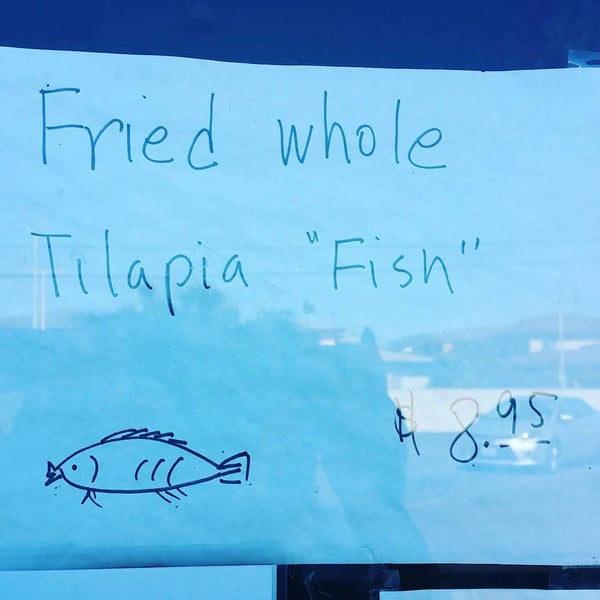 Fried whole
Tilapia "Fish"
$8.95